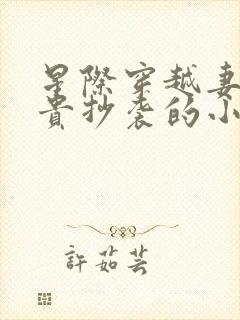 星際穿越妻
貴抄袭的小
許茹芸